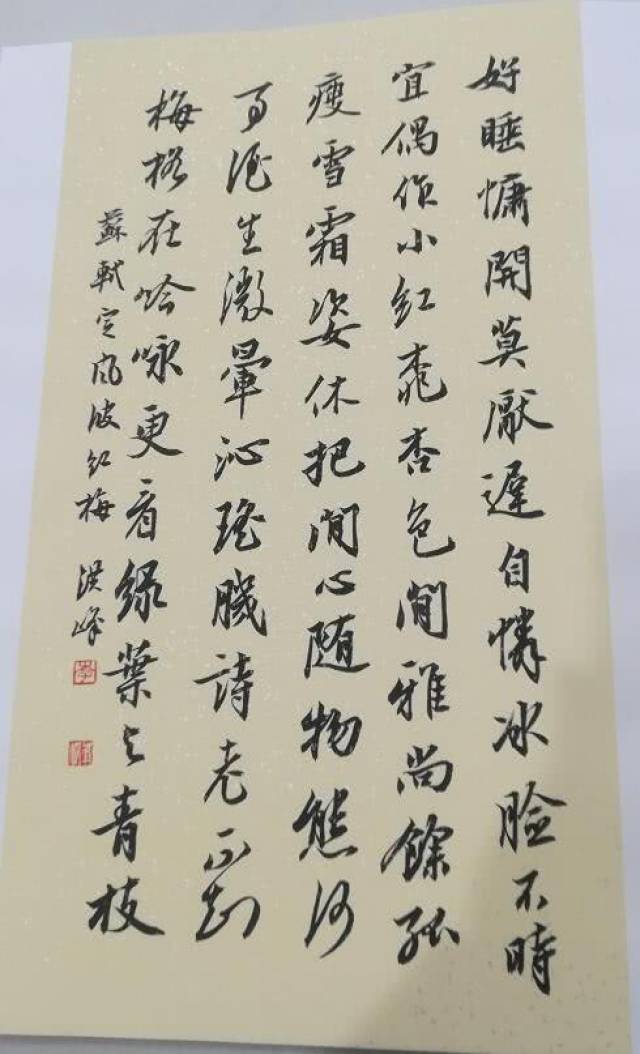 好睡慵開莫厭遲自憐冰臉不時
宜偶作小紅桃杏色閒雅尚餘孤
瘦雪霜姿休把閒心随物態何
事酒生微暈沁瑤肌詩老不知
梅格在吟咏更看綠葉与青枝
蘇軾定風波紅梅 洪峰